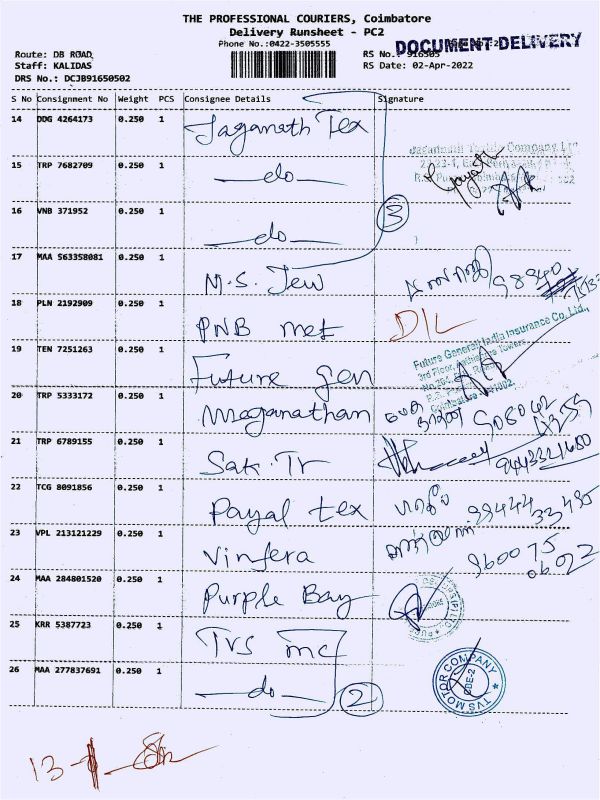 THE PROFESSIONAL COURIERS, Coimbatore
Delivery Runsheet - PC2
Phone No.:0422-3505555
DOCUMENT DELIVERY
Route: DB ROAD
RS No.: 916505
Staff: KALIDAS
RS Date: 02-Apr-2022
DRS No.: DCJB91650502
S No Consignment No Weight PCS Consignee Details Signature
14 DDG 4264173 0.250 1 Jaganath Tex
Jagannath Textile Company
15 TRP 7682709 0.250 1 —do—
16 VNB 371952 0.250 1 —do— 3
17 MAA 563358081 0.250 1 M.S. Jew
18 PLN 2192909 0.250 1 PNB met D/L
19 TEN 7251263 0.250 1 Future gen
Future General India Insurance Co. Ltd.,
20 TRP 5333172 0.250 1 Meganathan
21 TRP 6789155 0.250 1 Sak. Tr 9443321680
22 TCG 8091856 0.250 1 Payal tex
23 VPL 213121229 0.250 1 Vinfera 960075
24 MAA 284801520 0.250 1 Purple Bay
25 KRR 5387723 0.250 1 TVS mc
26 MAA 277837691 0.250 1 —do— 2
TVS MOTOR COMPANY
CBE-2
13